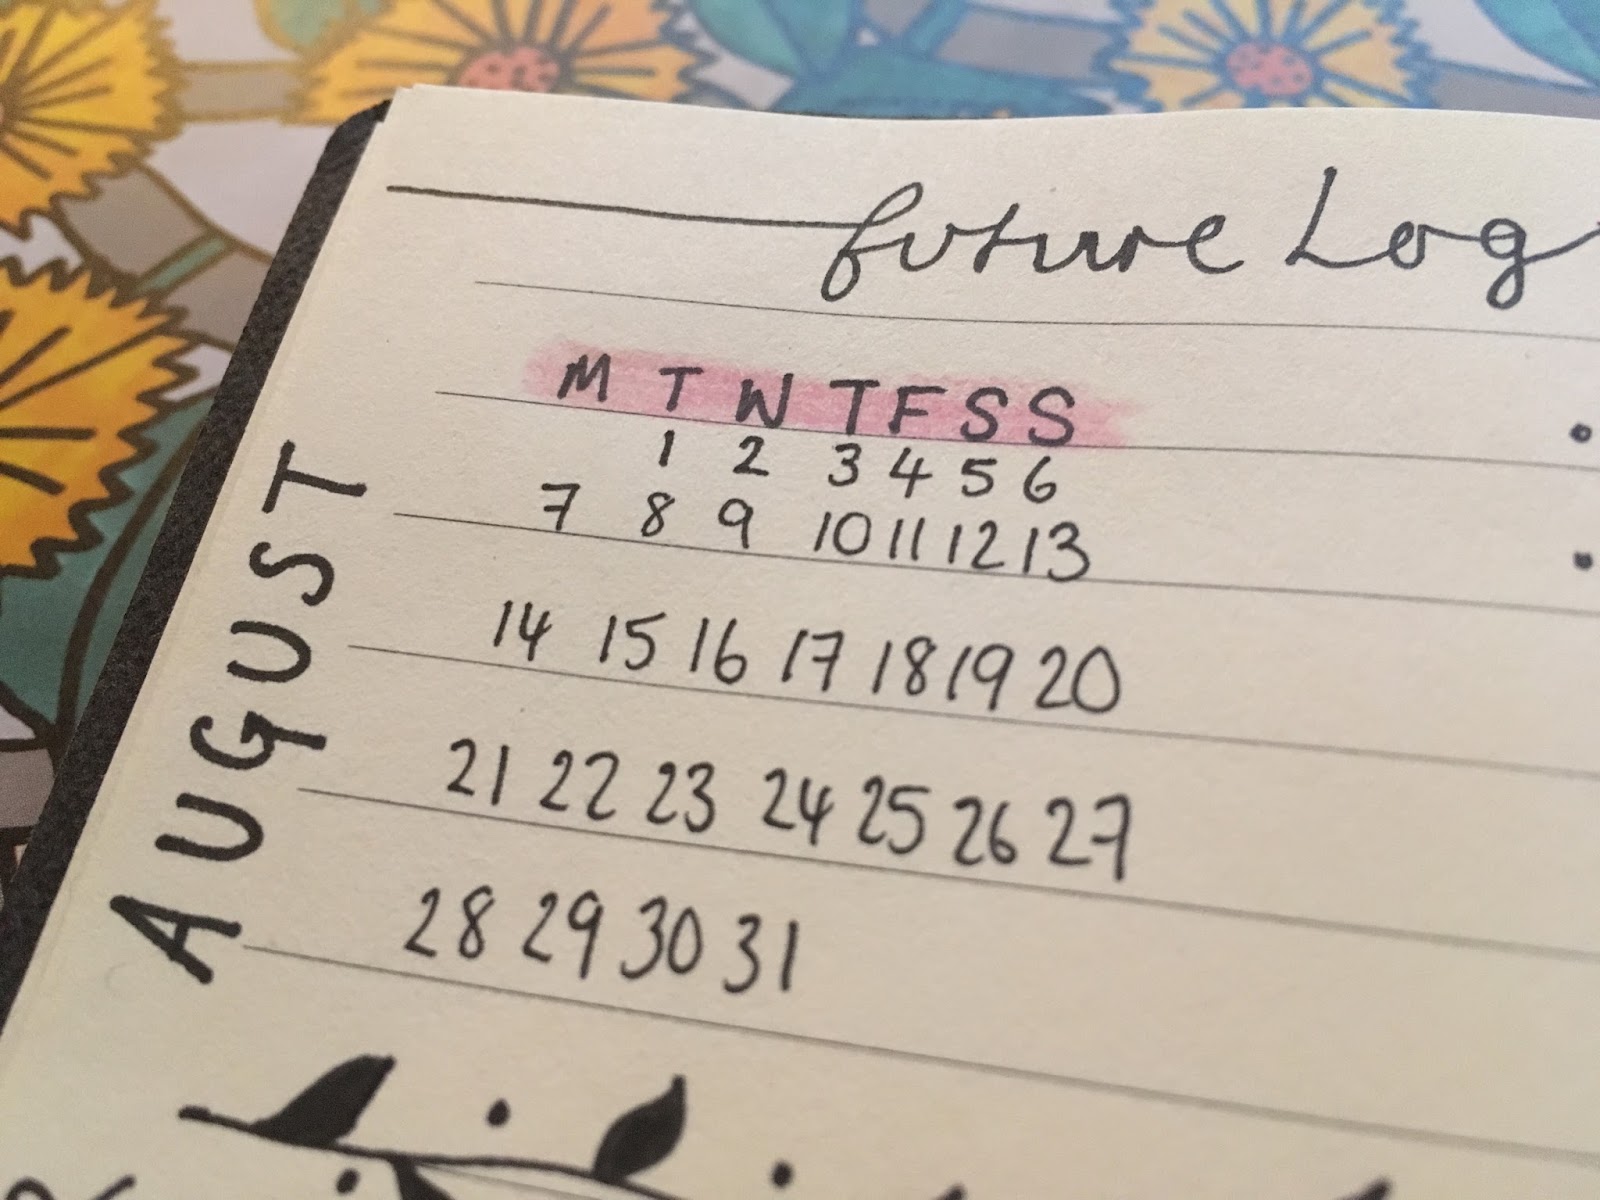 future Log
M T W T F S S
1 2 3 4 5 6
7 8 9 10 11 12 13
14 15 16 17 18 19 20
21 22 23 24 25 26 27
28 29 30 31
AUGUST